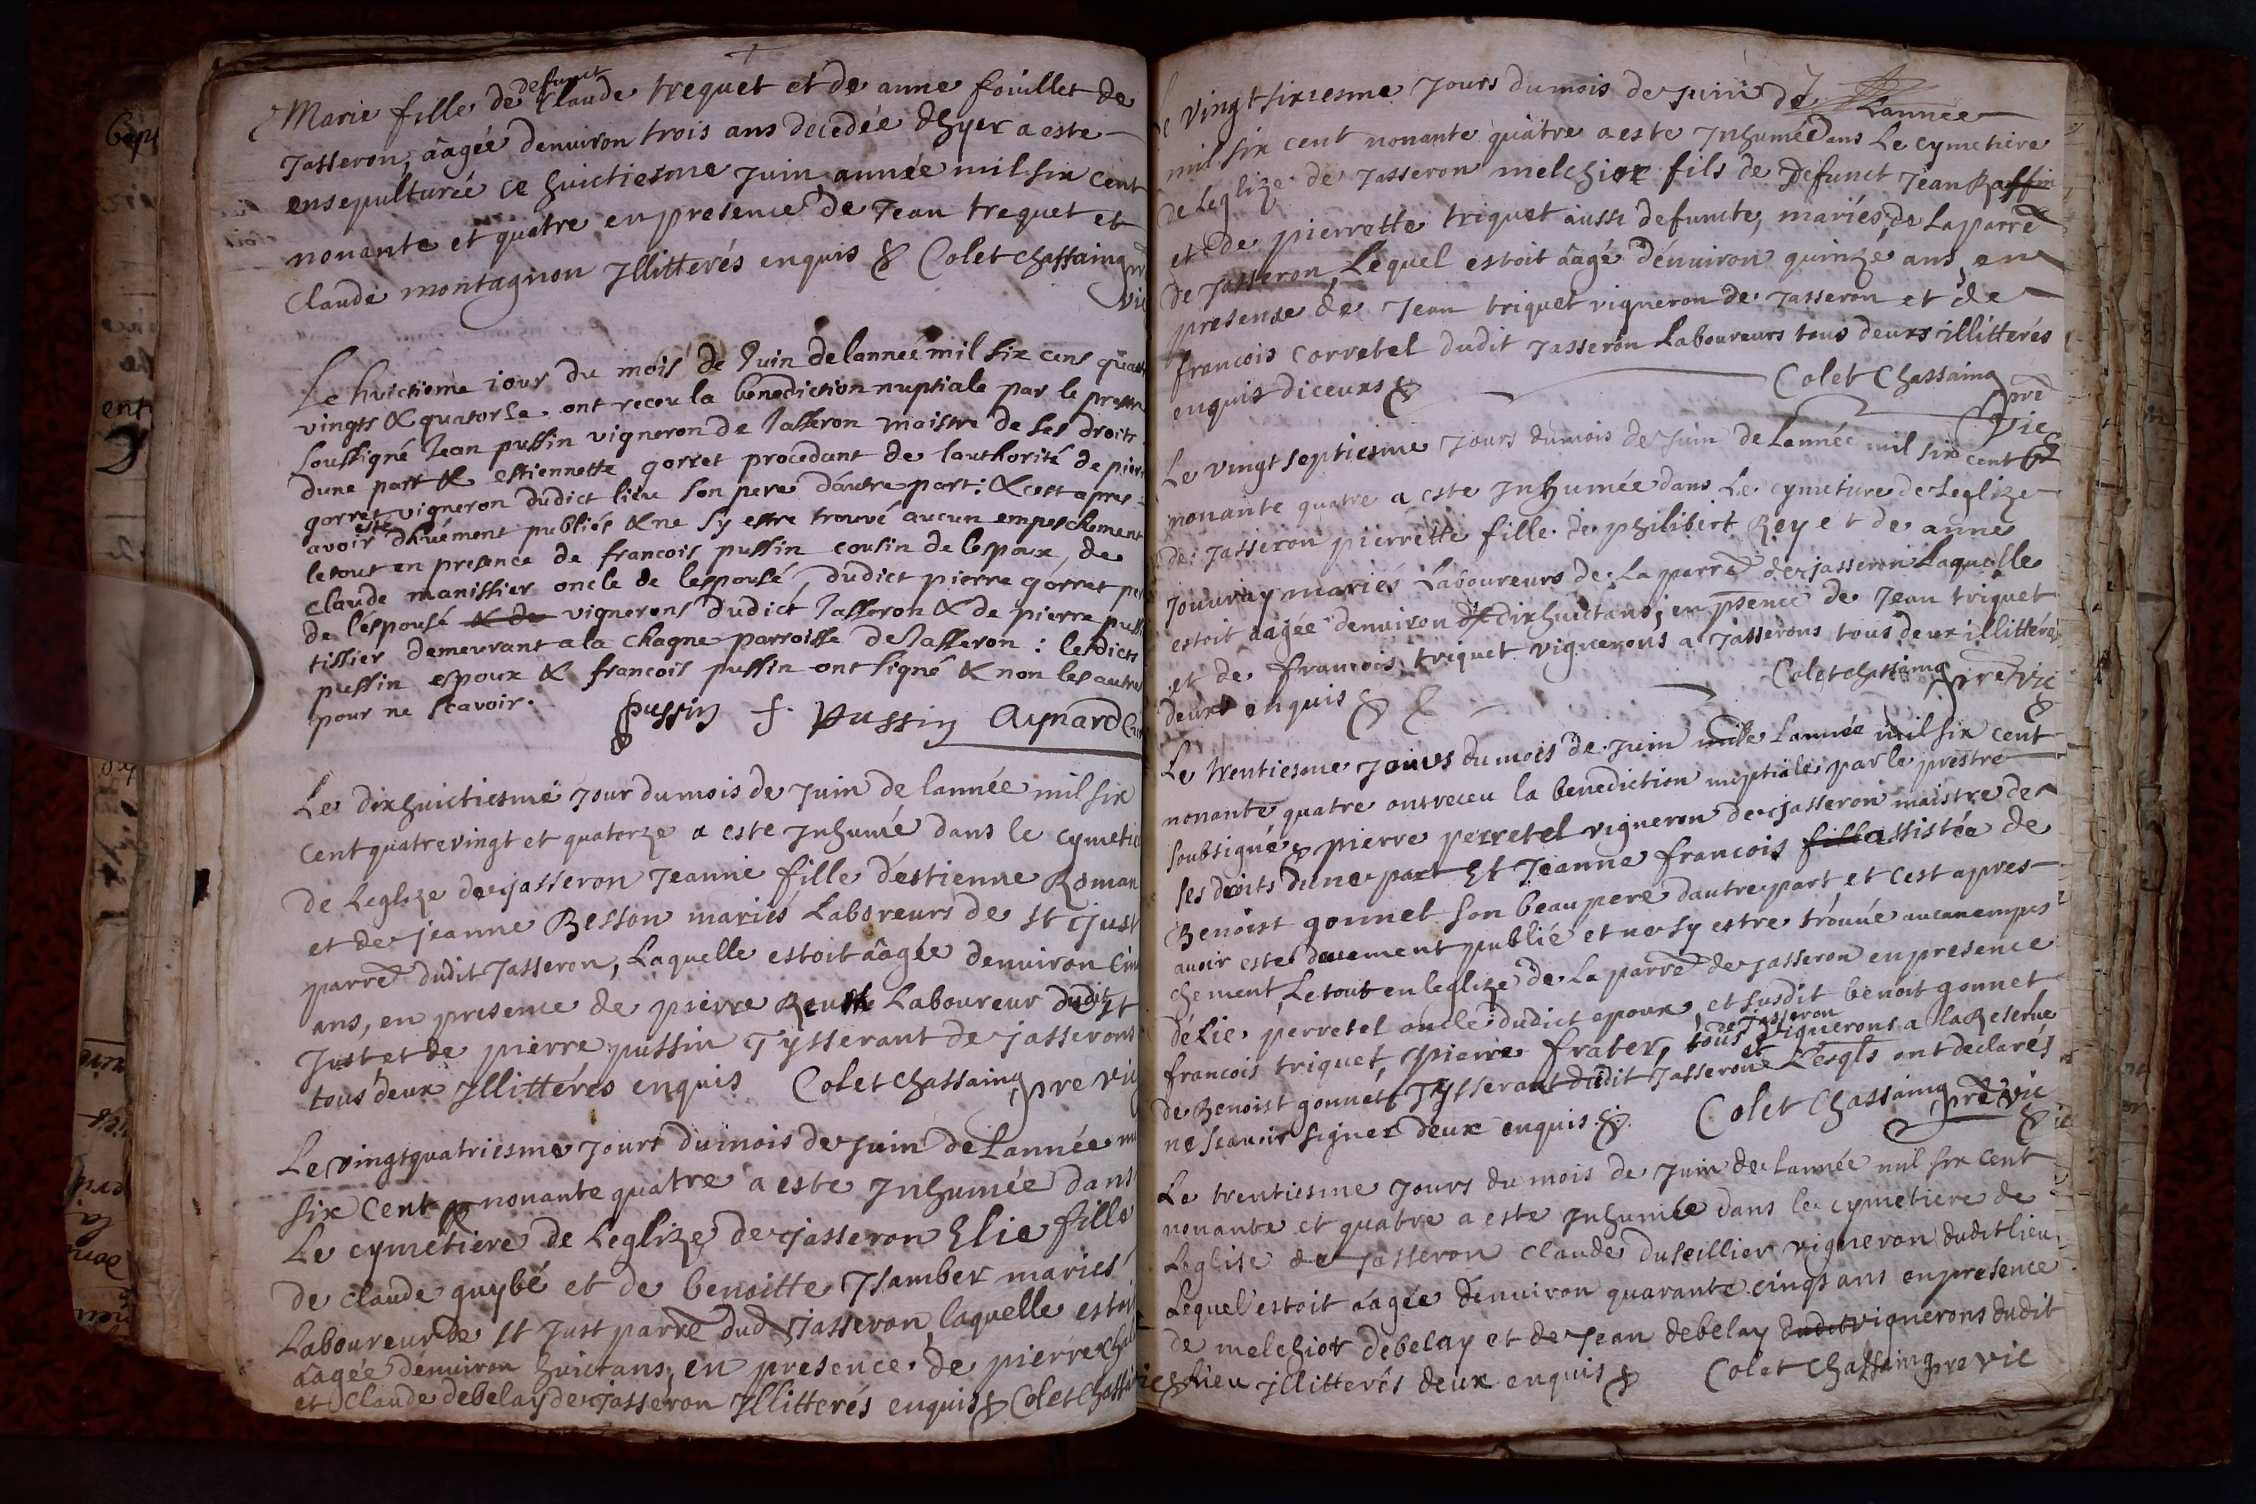 Marie fille de defunct Claude trequet et de anne fouillet de
Jasseron, aagée denuiron trois ans decedée dhyer a este
ensepulturée ce huictiesme Juin année mil six cent
nonante et quatre en presence de Jean trequet et
Claude montagnon Jllitterés enquis & Colet chassaing
vic
Le huictieme iour du mois de Juin de lannee mil six cens quatre
vingts & quatorse ont receu la benediction nuptiale par le prestre
soussigné Jean pussin vigneron de Jasseron maistre de ses droits
dune part & estiennette gorret procedant de lauthorité de pierre
gorret vigneron dudict lieu son pere dautre part: & cest apres
avoir esté dhuément publiés & ne sy estre trouvé aucun empeschement
le tout en presence de francois pussin cousin de lespoux, de
Claude manissier oncle de lespousé, dudict pierre gorret pere
de lespousé & de vignerons dudict Jasseron & de pierre pussin
tissier demeurant a la Chagne parroisse de Jasseron: lesdicts
pussin espoux & francois pussin ont signé & non les autres
pour ne scavoir.
Pussin f. Pussin Aynard
Le dixhuictiesme Jour du mois de Juin de lannée mil six
cent quatre vingt et quatorze a este Jnhumé dans le cymetie
de Leglize de Jasseron Jeanne fille destienne Roman
et de jeanne Besson mariés Laboreurs de st Just
parre dudit Jasseron, Laquelle estoit aagée denuiron cin
ans, en presence de pierre Laboureur dudit st
Just et de pierre pussin Tysserant de jasserons
tous deux Jllittéres enquis Colet chassaing pre vic
Le vingtquatriesme Jours du mois de Juin de Lannée mil
six Cent nonante quatre a este Jnhumée dans
Le cymetiere de Leglize de Jasseron Elie fille
de claude guybé et de benoitte Jsamber mariés
Laboureur de st Just parre dud Jasseron laquelle estoit
aagée denuiron huictans, en presence de pierre
et Claude debelay de Jasseron Jllitterés enquis & Colet Chassain
Le vingtsixiesme Jours du mois de Juin de Lannée
mil six cent nonante quatre a este Jnhumée dans Le cymetiere
de Leglize de Jasseron melchior fils de defunct Jean Raffin
et de pierrette triquet aussi defuncte, mariés, de La parre
de Jasseron, Lequel estoit aagé denuiron quinze ans, en
presense de Jean triquet vigneron de Jasseron et de
francois Corretel dudit Jasseron Laboureurs tous deux illitterés
enquis diceux &
Colet Chassaing pre
Vic
Le vingt septiesme Jours du mois de Juin de Lannée mil six cent
nonante quatre a este Jnhumée dans Le cymetiere de Leglize
de Jasseron pierrette fille de philibert Rey et de anne
Jouuray mariés Laboureurs de La parre de Jasseron Laquelle
estoit aagée denuiron dix dixhuictans, en psence de Jean triquet
et de francois triquet vignerons a Jasserons tous deux illittéré
deux enquis & &
Colet chassaing pre vic
Le trentiesme Jours du mois de Juin mille Lannée mil six cent
nonante quatre ont receu la benediction nuptiale par le prestre
soubsigné pierre perretel vigneron de Jasseron maistre de
ses droits dune part Et Jeanne francois fille assistée de
Benoist gonnet son beau pere dautre part et cest apres
auoir este duement publié et ne sy estre trouué aucun empes
chement, Le tout en leglize de La parre de Jasseron en presence
délie perretel oncle dudict epoux, et susdit benoit gonnet
francois triquet, Pierre frater, tous de Jasseron vignerons a la Reserue
de Benoist gonnet Tysserant dudit Jasseron et Lesqls ont declarés
ne scauoir signer deux enquis &.
Colet Chassaing pre vic
Le trentiesme Jours du mois de Juin de Lannée mil six cent
nonante et quatre a este Jnhumée dans le cymetiere de
Leglise de Jasseron Claude duseillier vigneron dudit lieu
Lequel estoit aagée denuiron quarante cinqs ans en presence
de melchior debelay et de Jean debelay dudit vignerons dudit
lieu jllitterés deux enquis & Colet Chassaing pre vic